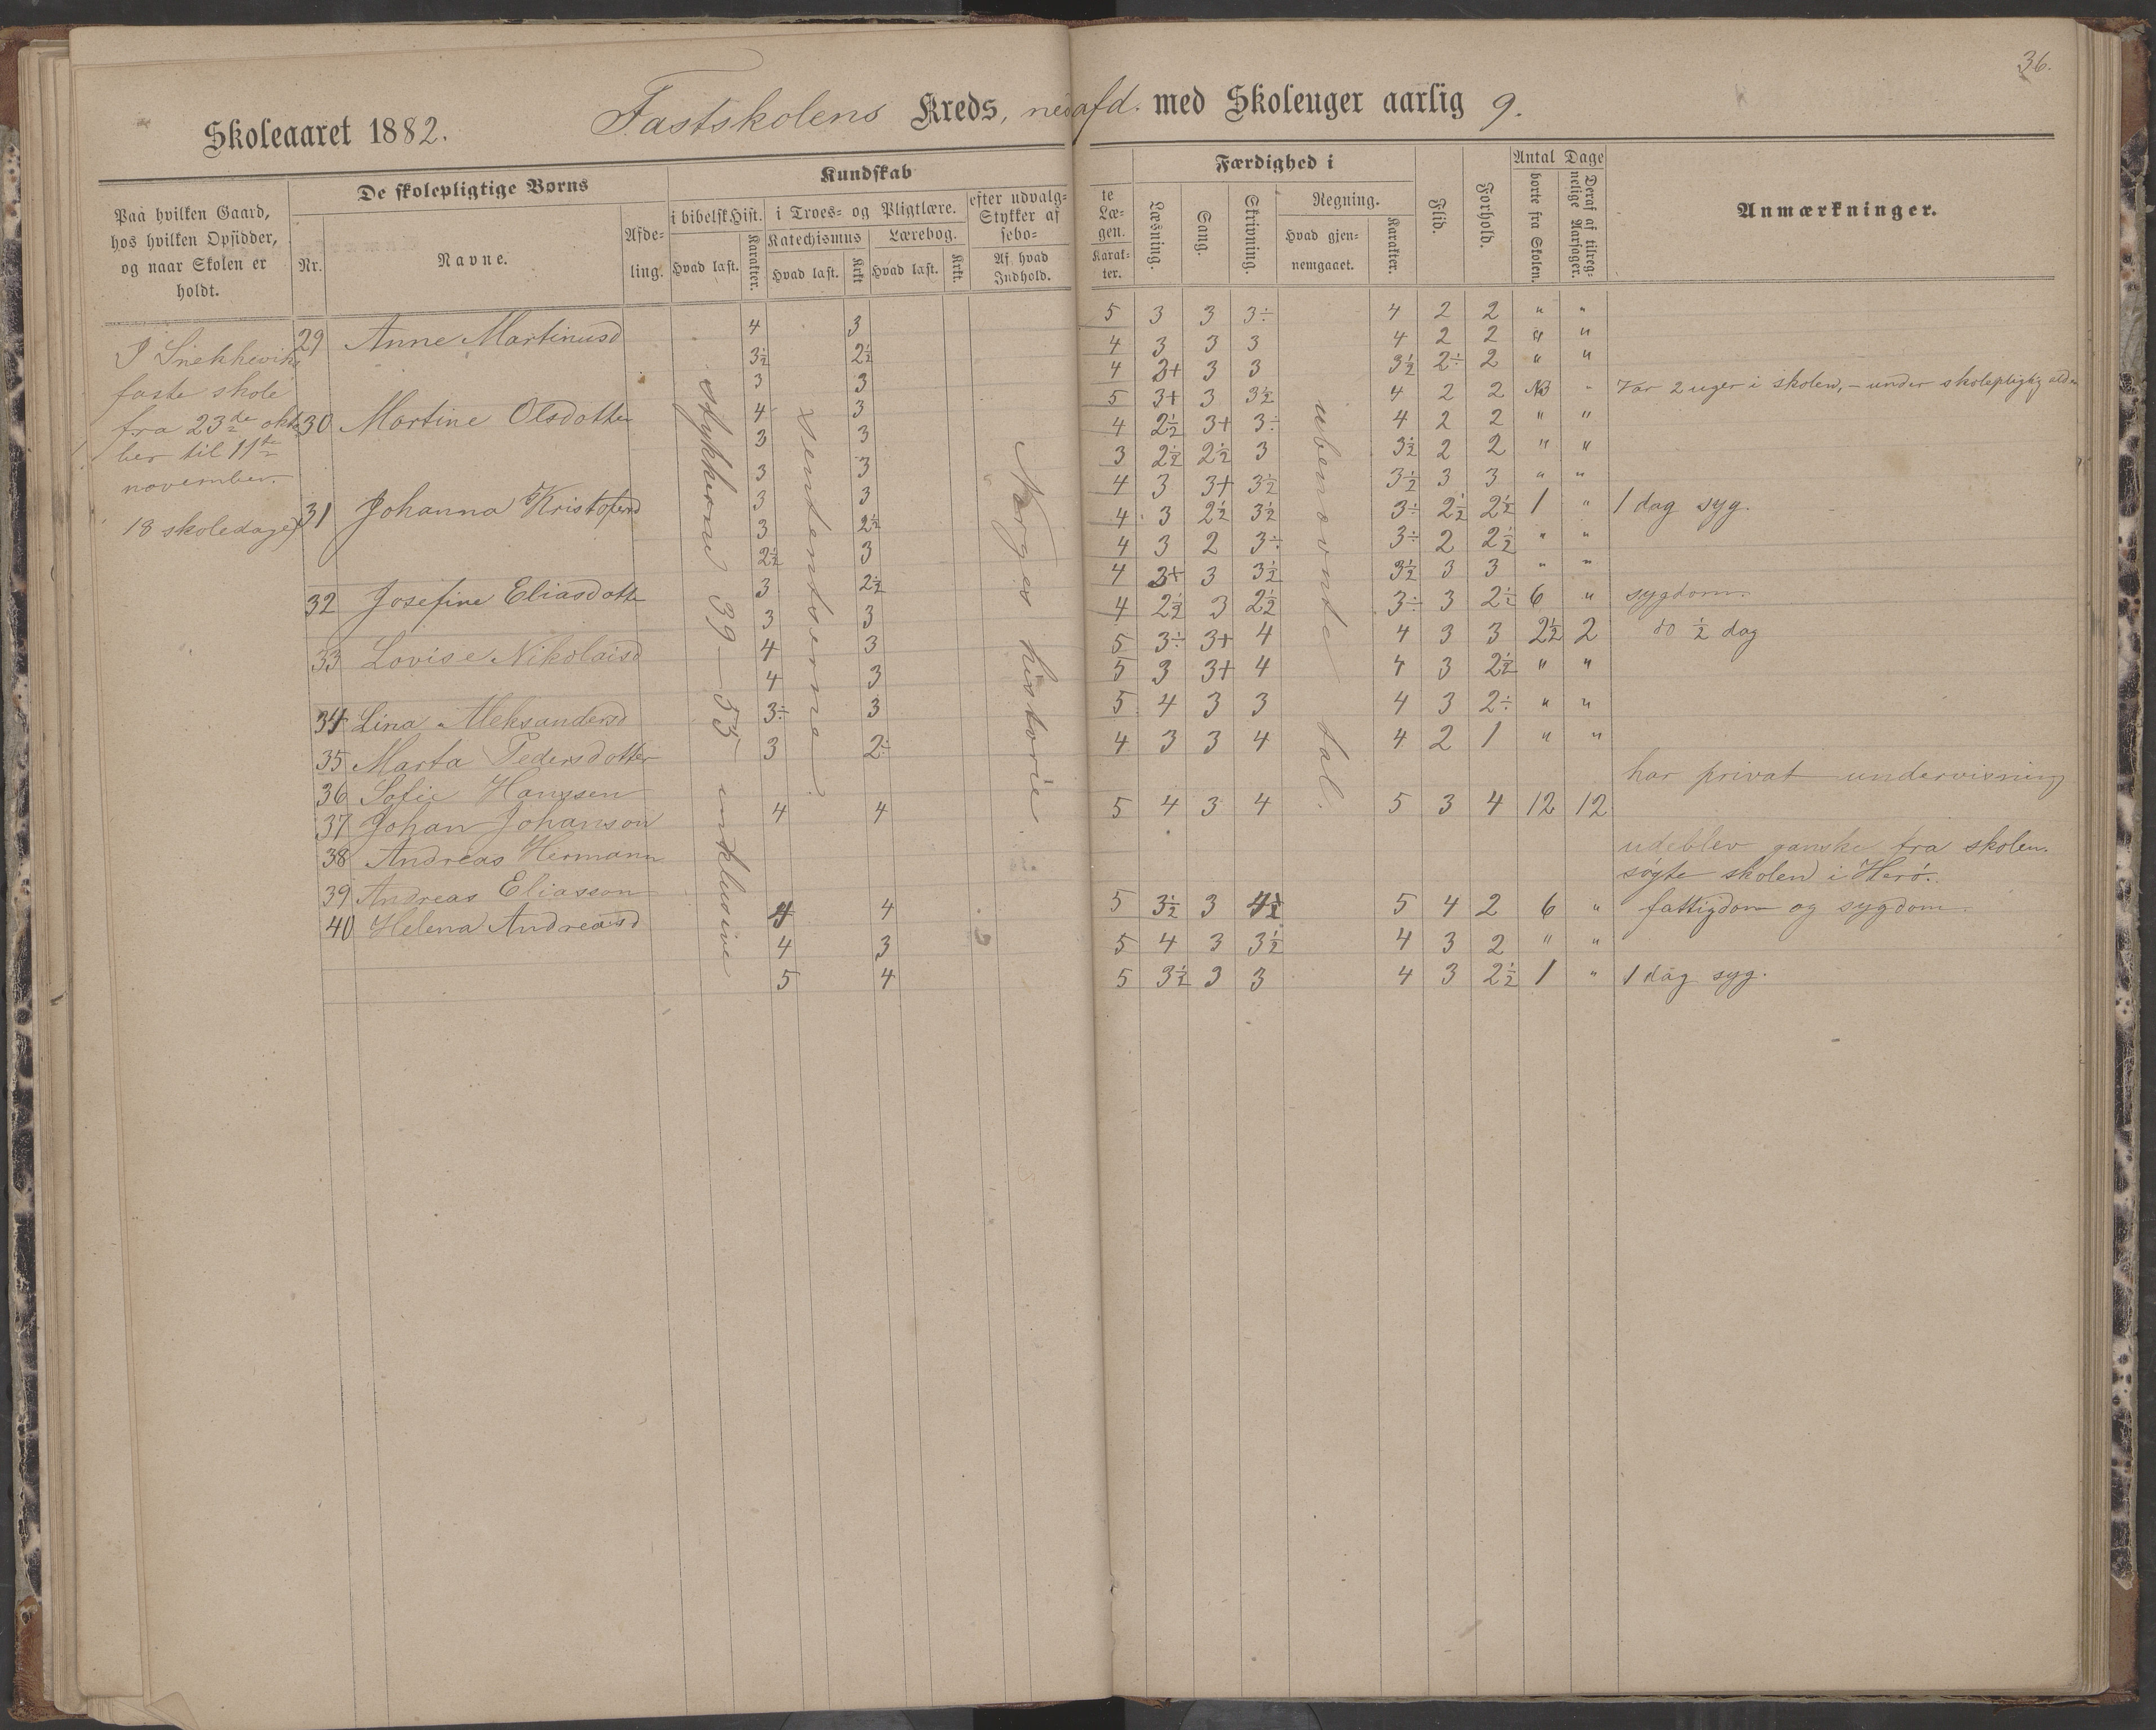 36.
Skoleaaret 1882. Fastskolens Kreds, nedafd. med Skoleuger aarlig 9.
Paa hvilken Gaard,
hos hvilken Opsidder,
og naar Skolen er
holdt.
De skolepligtige Børns
Nr.
Navne.
Afde-
ling.
Kundskab
i bibelsk Hist.
Hvad læst.
Karakter.
i Troes- og Pligtlære.
Katechismus
Hvad læst.
Krkt
Lærebog.
Hvad læst.
Krkt.
efter udvalg-
Stykker af
sebo-
Af hvad
Indhold.
te
Læ-
gen.
Karak-
ter.
Færdighed i
Læsning.
Sang.
Skrivning.
Regning.
Hvad gjen-
nemgaaet.
Karakter.
Flid.
Forhold.
Antal Dage
borte fra Skolen.
Deraf af tilreg-
nelige Aarsager.
Anmærkninger.
I Snekkevik
faste skole
fra 23de okto
ber til 11te
november.
18 skoledage
29 Anne Martinusd
30 Martine Olsdotter
31 Johanna Kristofersd
32 Josefine Eliasdotter
33 Lovise Nikolaisd
34 Lina Aleksandersd
35 Marta Pedersdotter
36 Sofie Hanssen
37 Johan Johanson
38 Andreas Hermann
39 Andreas Eliasson
40 Helena Andreasd
stykkerne 39 – 55 inklusive
sentensentserne
Norges historie
ubenævnte tal.
4 3
3½ 2½
3 3
4 3
3 3
3 3
3 3
3 2½
2½ 3
3 2½
3 3
4 3
4 3
3÷ 3
3 2÷
4 4
4 4
4 3
5 4
5 3 3 3÷ 4 2 2 " "
4 3 3 3 4 2 2 " "
4 3+ 3 3 3½ 2÷ 2 " "
5 3+ 3 3½ 4 2 2 NB " Var 2 uger i skolen, – under skolepligtig alder
4 2½ 3+ 3÷ 4 2 2 " "
3 2½ 2½ 3 3½ 2 2 " "
4 3 3+ 3½ 3½ 3 3 " "
4 3 2½ 3½ 3÷ 2½ 2½ 1 " 1 dag syg.
4 3 2 3÷ 3÷ 2 2½ " "
4 3+ 3 3½ 3½ 3 3 " "
4 2½ 3 2½ 3÷ 3 2½ 6 " sygdom.
5 3÷ 3+ 4 4 3 3 2½ 2 do ½ dag
5 3 3+ 4 4 3 2½ " "
5 4 3 3 4 3 2÷ " "
4 3 3 4 4 2 1 " "
har privat undervisning
5 4 3 4 5 3 4 12 12
udeblev ganske fra skolen.
søgte skolen i Herø.
5 3½ 3 4½ 5 4 2 6 " fattigdom og sygdom.
5 4 3 3½ 4 3 2 " "
5 3½ 3 3 4 3 2½ 1 " 1 dag syg.